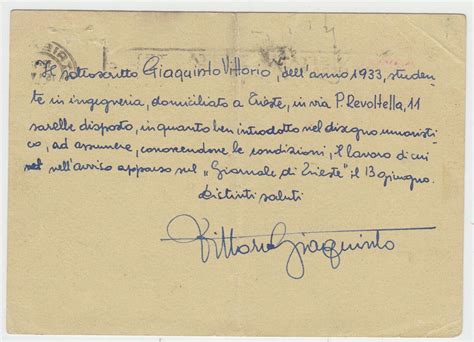 Il sottoscritto Giaquinto Vittorio, dell'anno 1933, studen-
te in ingegneria, domiciliato a Trieste, in via P. Revoltella, 11
sarebbe disposto, in quanto ben introdotto nel disegno umoristi-
co, ad assumere, conoscendone le condizioni, il lavoro di cui
nell'avviso apparso sul „Giornale di Trieste" il 13 giugno.
Distinti saluti
Vittorio Giaquinto